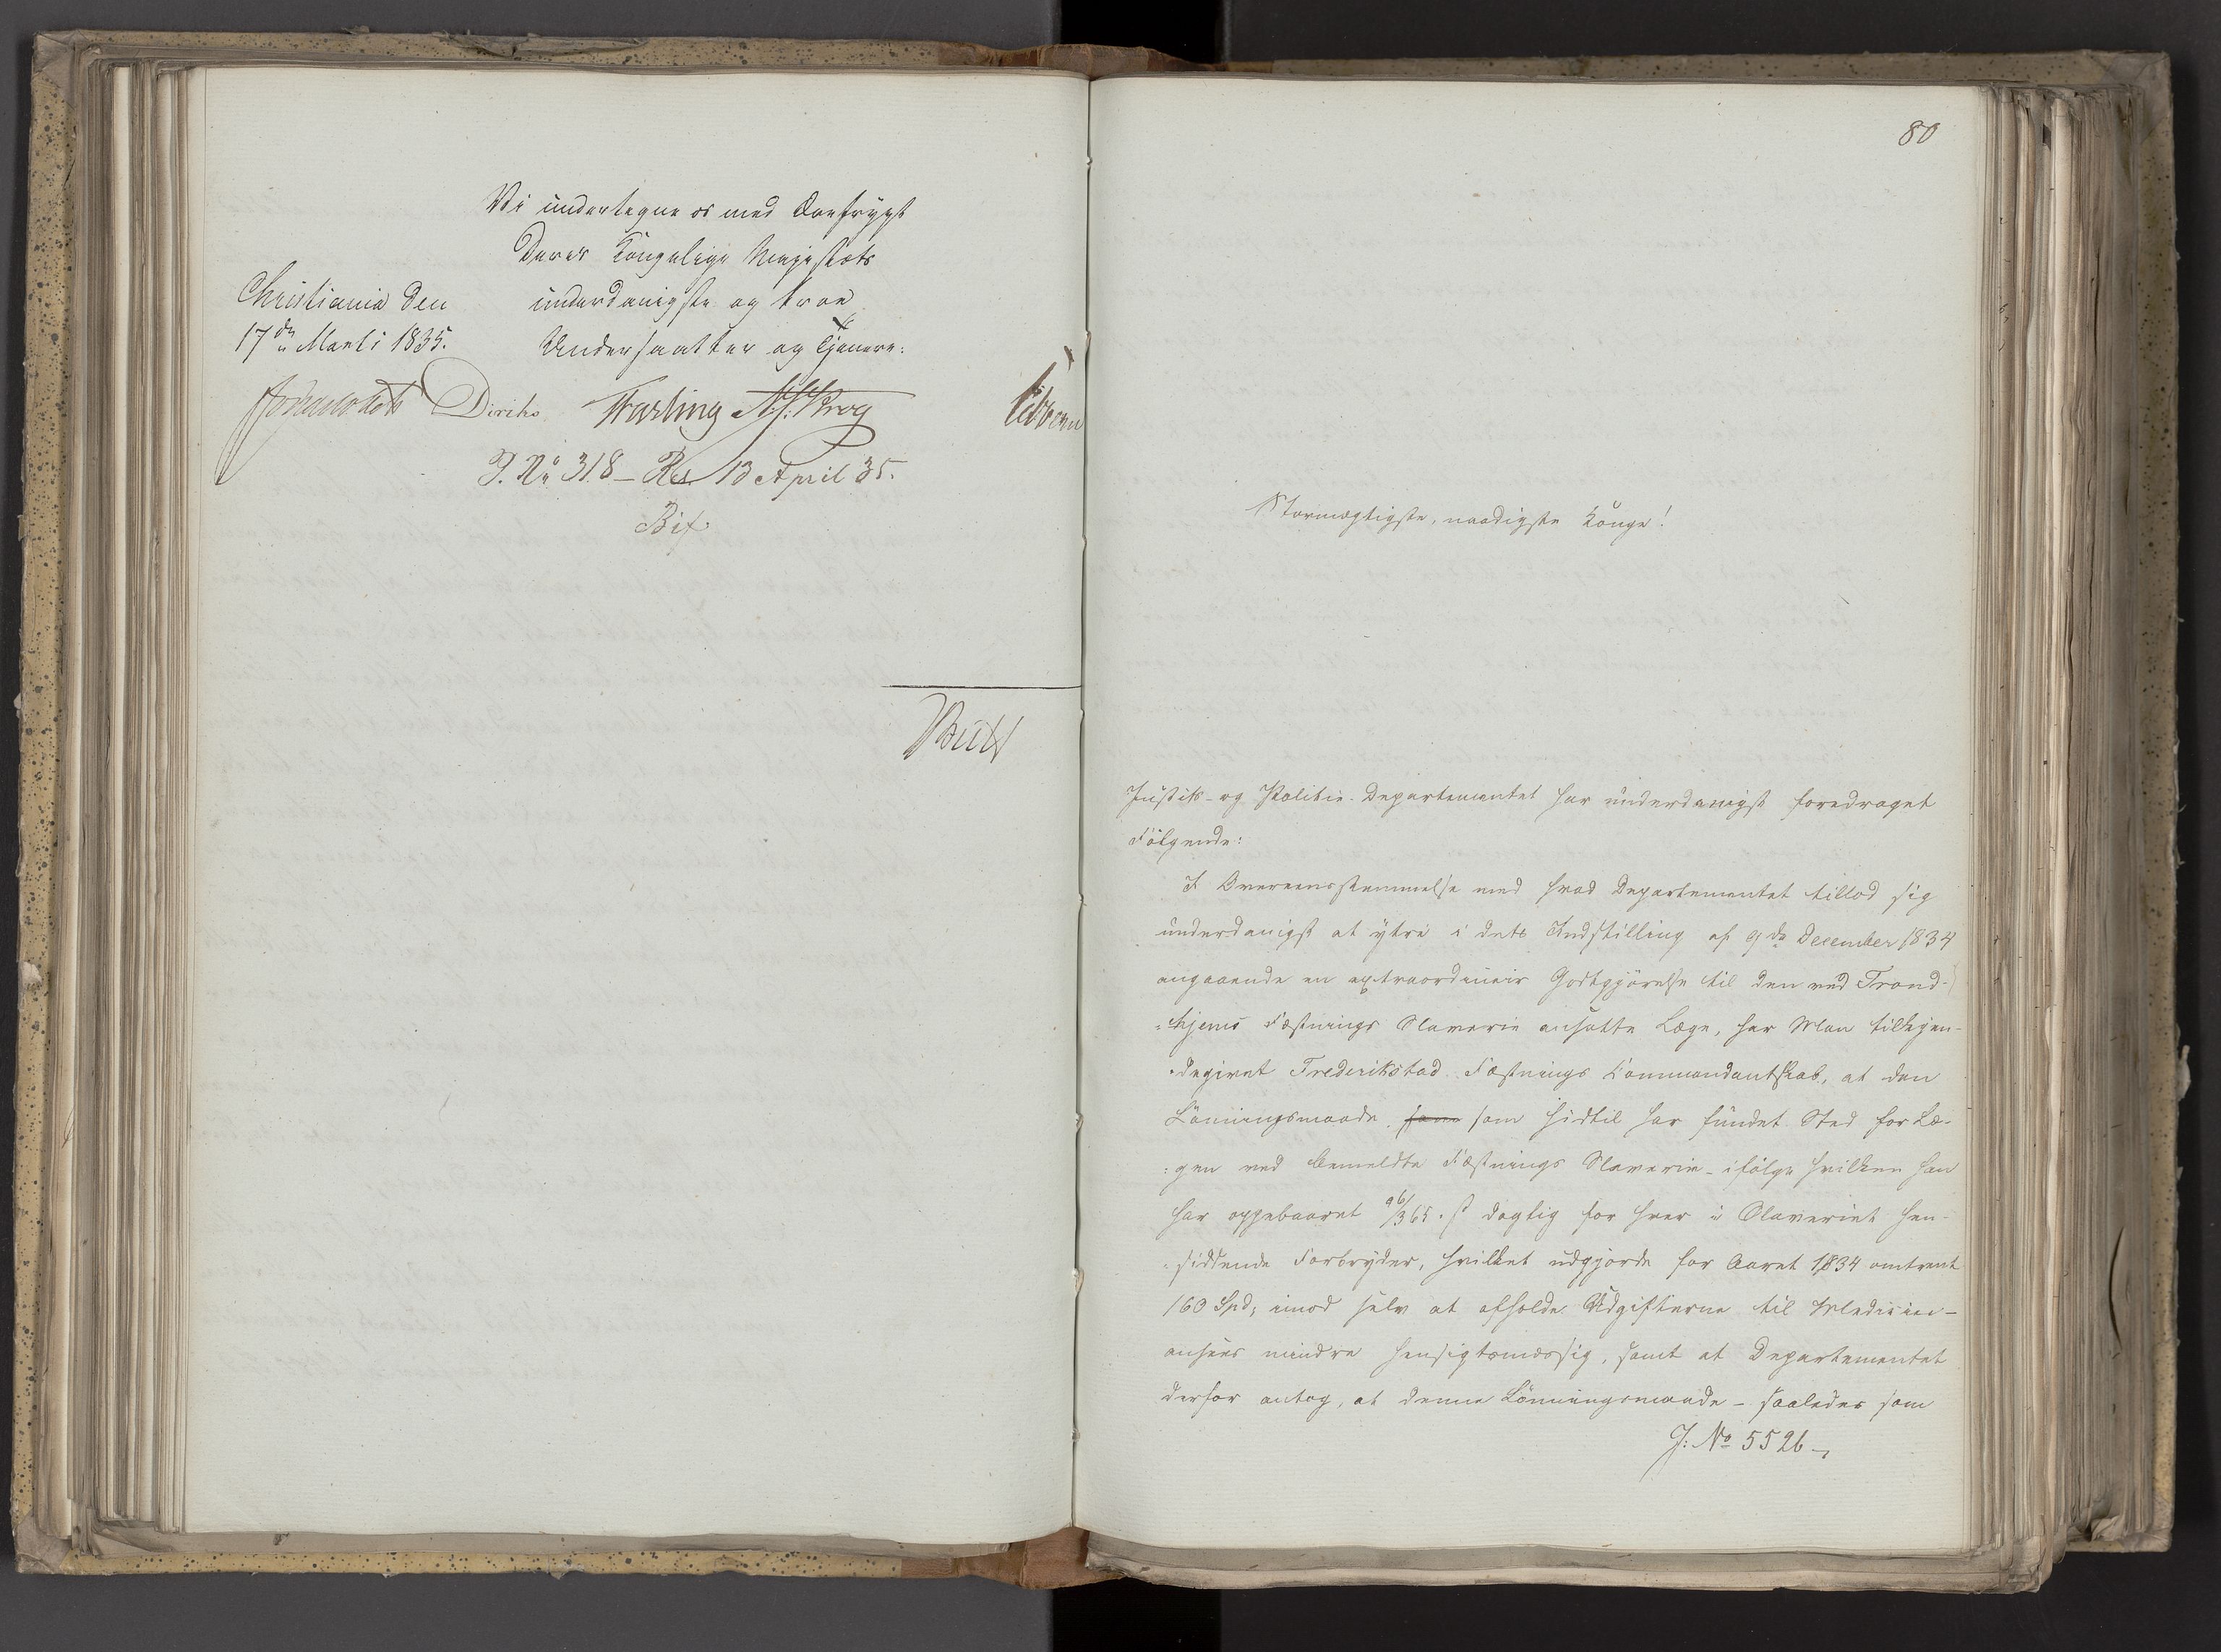 Vi undertegne os med Ærefrygt
Deres Kongelige Majestæts
Christiania den
underdanigste og troe
17de Marti 1835.
Undersaatter og Tjenere:
Diriks Fasting N. J. Krog
Sibbern
J. No 318 - Res. 13 April 35.
Bif.
80
Stormægtigste, naadigste Konge!
Justits- og Politie-Departementet har underdanigst foredraget
Følgende:
I Overeensstemmelse med hvad Departementet tillod sig
underdanigst at yttre i dets Indstilling af 9de December 1834
angaaende en extraordinair Godtgjørelse til den ved Trond-
=hjems Fæstnings Slaverie ansatte Læge, har Man tilkjen-
=degivet Frederikstad Fæstnings Commandantskab, at den
Lønningsmaade, som som hidtil har fundet Sted for Læ-
=gen ved bemeldte Fæstnings Slaverie - ifølge hvilken han
har oppebaaret 96/365 ß daglig for hver i Slaveriet hen-
=siddende Forbryder, hvilket udgjorde for Aaret 1834 omtrent
160 Spd, imod selv at afholde Udgifterne til Medicin -
ansees mindre hensigtsmæssig, samt at Departementet
derfor antog, at denne Lønningsmaade - saaledes som
J: No 5526